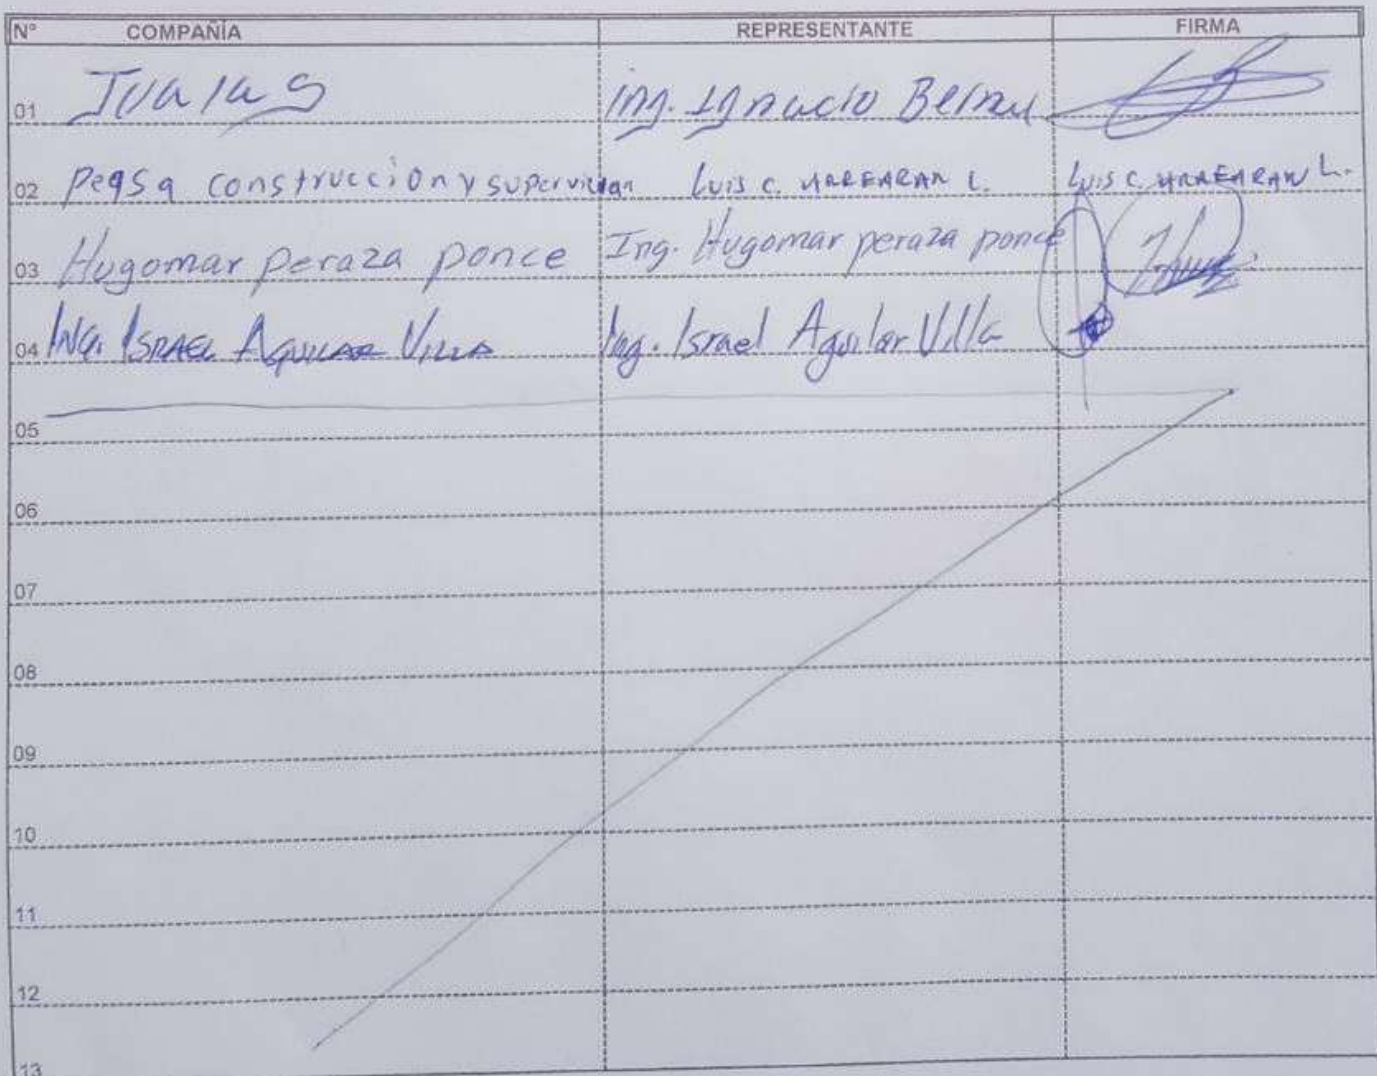 N° COMPAÑÍA REPRESENTANTE FIRMA
01 ing. Ignacio Bernal
02 Peasa construcción y supervision Luis C. L. Luis C. L.
03 Hugomar peraza ponce Ing. Hugomar peraza ponce
04 ING. ISRAEL AGUILAR VILLA Ing. Israel Aguilar Villa
05
06
07
08
09
10
11
12
13